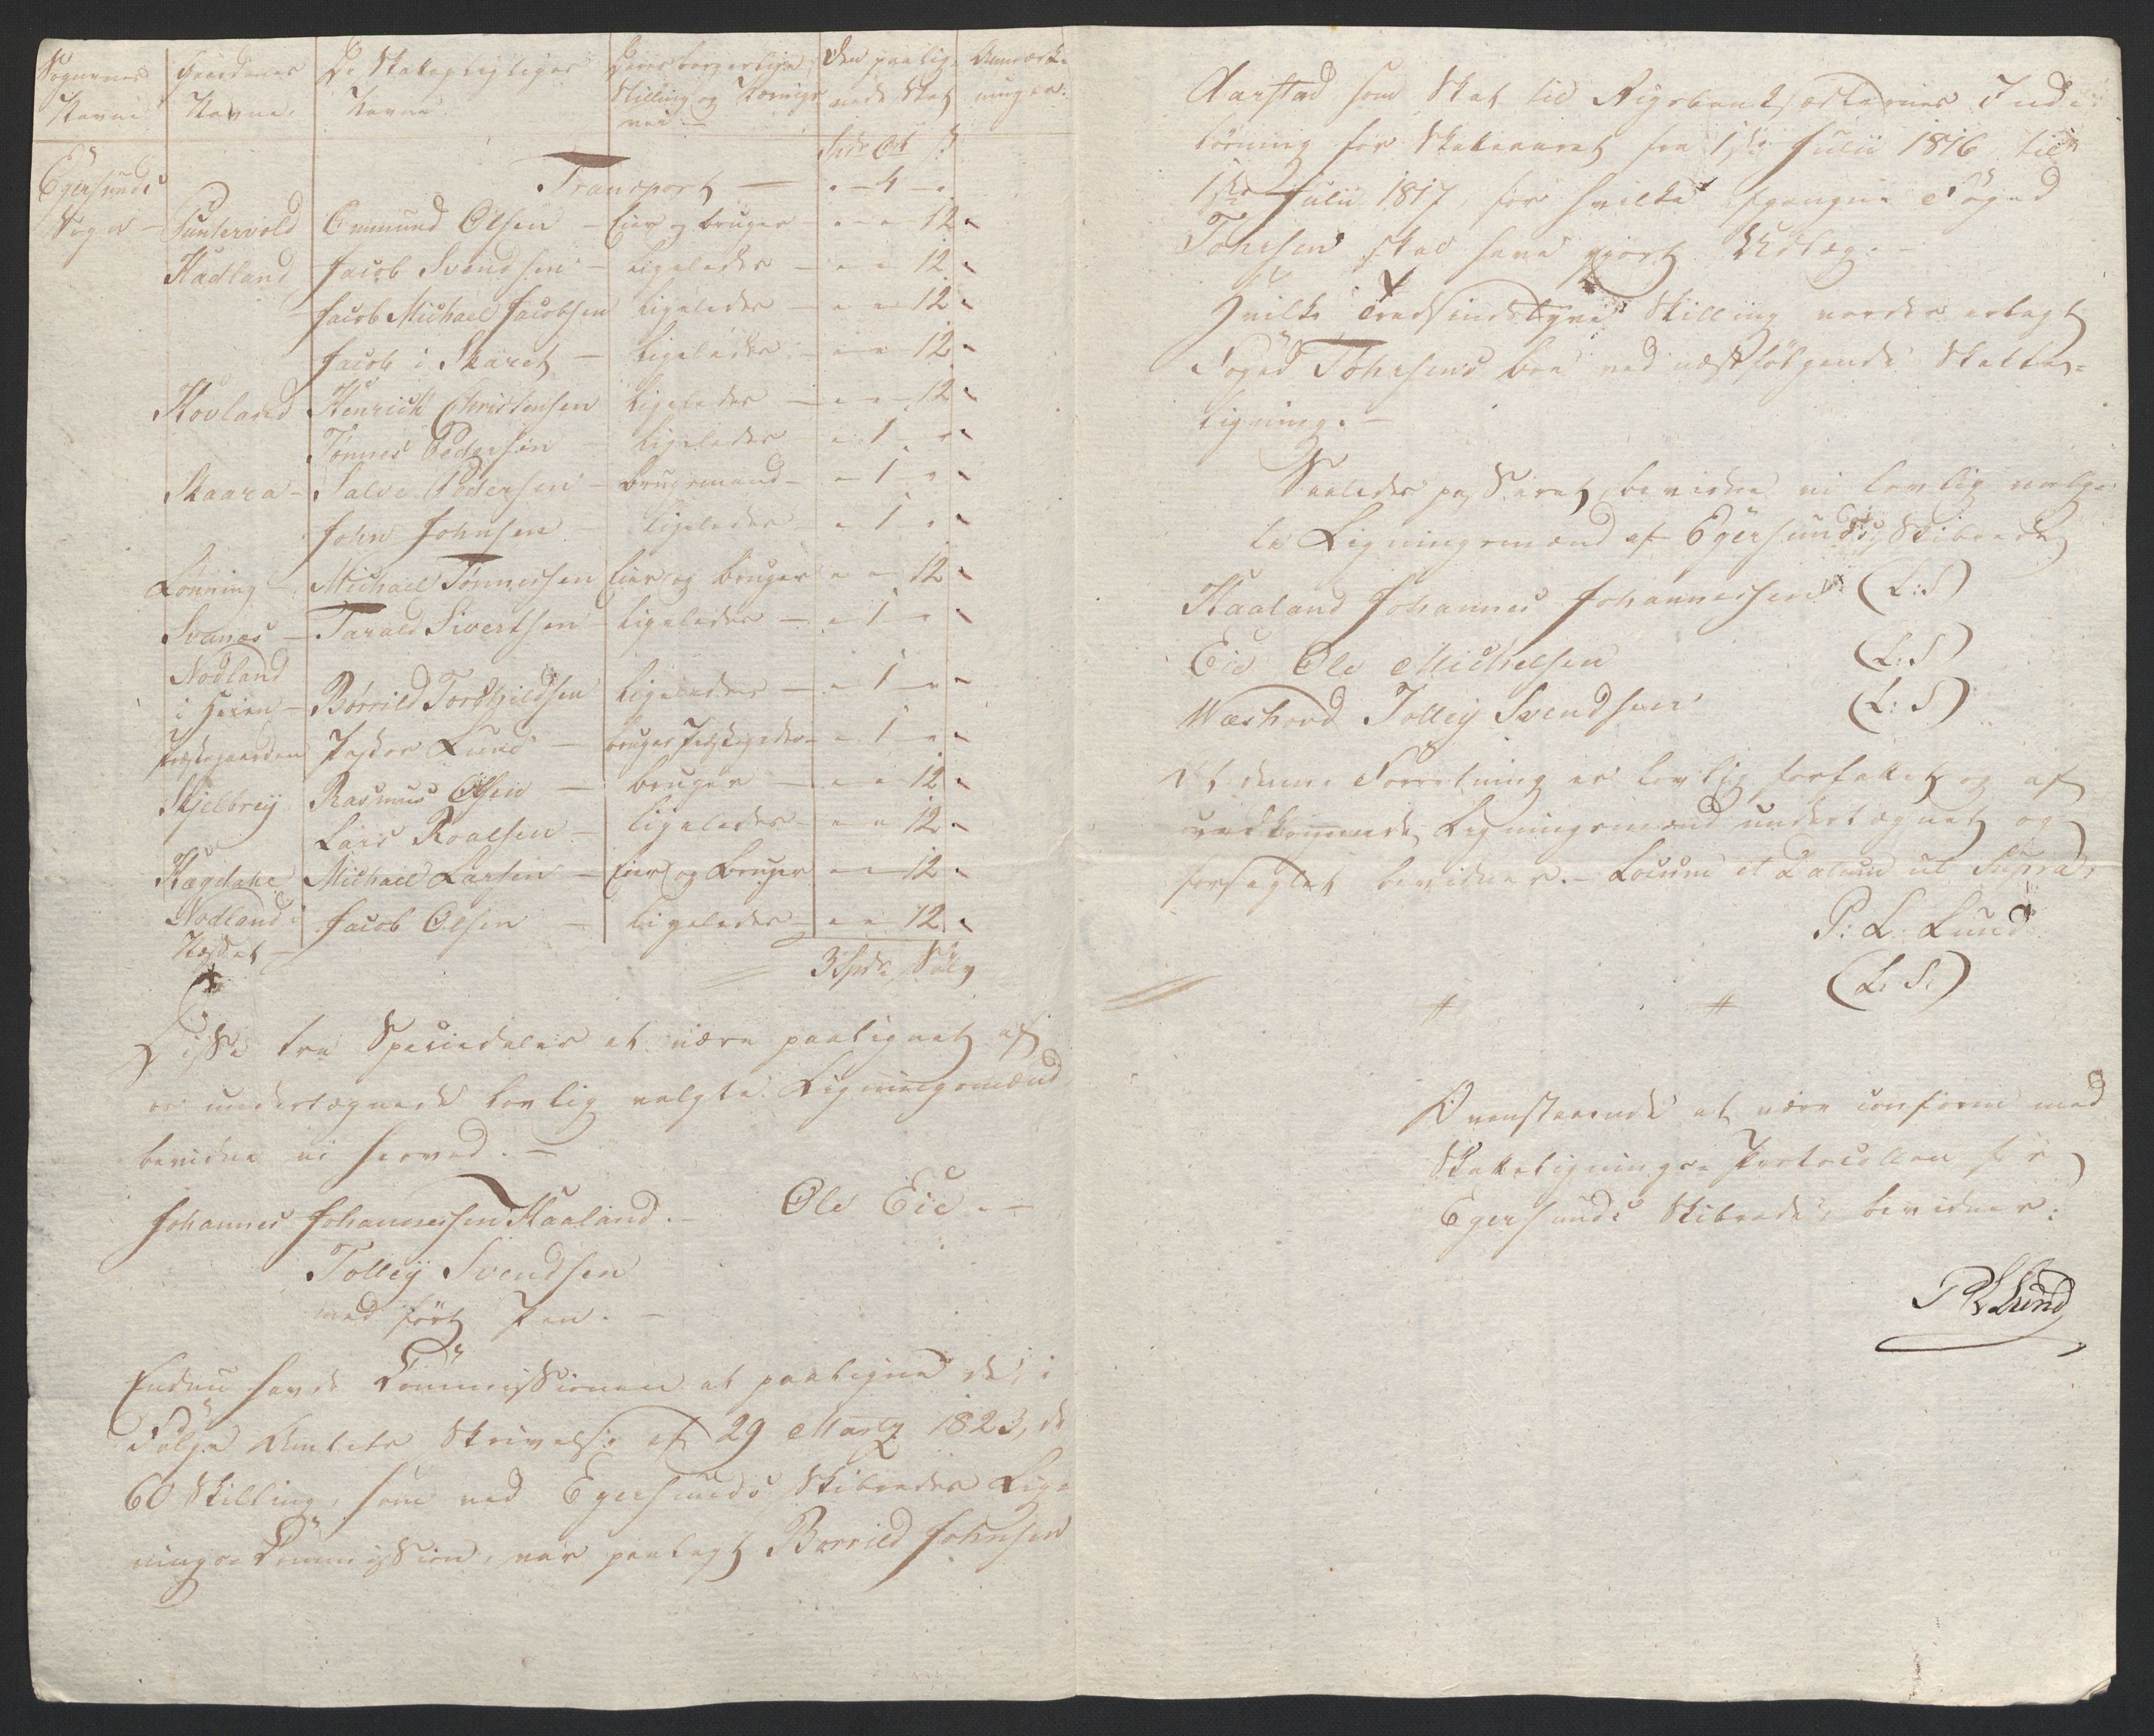 Sognenes Navne | Gaardenes Navne | De Skatepligtiges Navne | Deres borgerlige Stilling og Nærings vei | Den paalignede Skat | Anmærkninger
Spdr Ort ß
Transport — " — 4 — "
Egersunds Sogn — Puntervold | Ommund Olsen — | Eier og bruger — " — " 12 "
Hadland | Jacob Svendsen — | Ligeledes — " " 12 "
Jacob Michael Jacobsen | Ligeledes — " " 12 "
Jacob i Skaret — | Ligeledes — " " 12 "
Hovland | Henrich Christensen | Ligeledes — " " 12 "
Tønnes Pedersen — | Ligeledes — " 1 " "
Skaara — | Salve Pedersen — | Brugsmand — " 1 " "
John Johnsen — | Ligeledes — " 1 " "
Lonning — | Michael Tønnessen | Eier og bruger " " 12 "
Svanes — | Tarald Sivertsen — | Ligeledes — " 1 " "
Nodland
i Heien — | Børrild Torkildsen | Ligeledes — " 1 — " "
Præstegaarden | Pastor Lund — | bruger — " 1 " "
Skjelbrey | Rasmus Olsen — | bruger — " " 12 "
Lars Roalsen — | Ligeledes — " " 12 "
Hægdahl | Michael Larsen — | Eier og Bruger " " 12 "
Nodland i
Næsset — | Jacob Olsen — | Ligeledes — " " 12 "
3 Spdr Sølv
Disse tre Speciedaler at være paalignet af
os undertegnede lovlig valgte Ligningsmænd
bevidne vi herved. —
Johannes Johannessen Kaaland. — Ole Eie. —
Tolley Svendsen
med ført Pen. —
Endnu havde Commissionen at paaligne de, i
Følge Amtets Skrivelse af 29 Martz 1823, de
60 Skilling, som ved Egersunds Skibredes Lig-
nings Commission, var paalagt Borrild Johnsen
Aarstad som Skat til Rigsbankhæfternes Ind-
løsning for Skateaaret fra 1ste Julii 1816 til
1ste Julii 1817, for hvilke afgangne Foged
Tohrsen skal have gjort Udlæg. —
Hvilke Tredsindstyve Skilling vorder erlagt
Foged Tohrsens boe ved næstfølgende Skatte-
ligning. —
Saaledes passeret, bevidne vi lovlig valg-
te Ligningsmænd af Egersunds Skibrede
Kaaland Johannes Johannessen (L:S)
Eie Ole Michelsen (L:S)
Washovd Tolley Svendsen (L:S)
At denne Forretning er lovlig forfattet og af
vedkommende Ligningsmænd undertegnet og
forseglet bevidner. — Locum et Datum ut Supra,
P: L. Lund
(L. S.)
Ovenstaaende at være conform med
Skatteligings-Protocollen for
Egersunds Skibrede, bevidner:
P L Lund